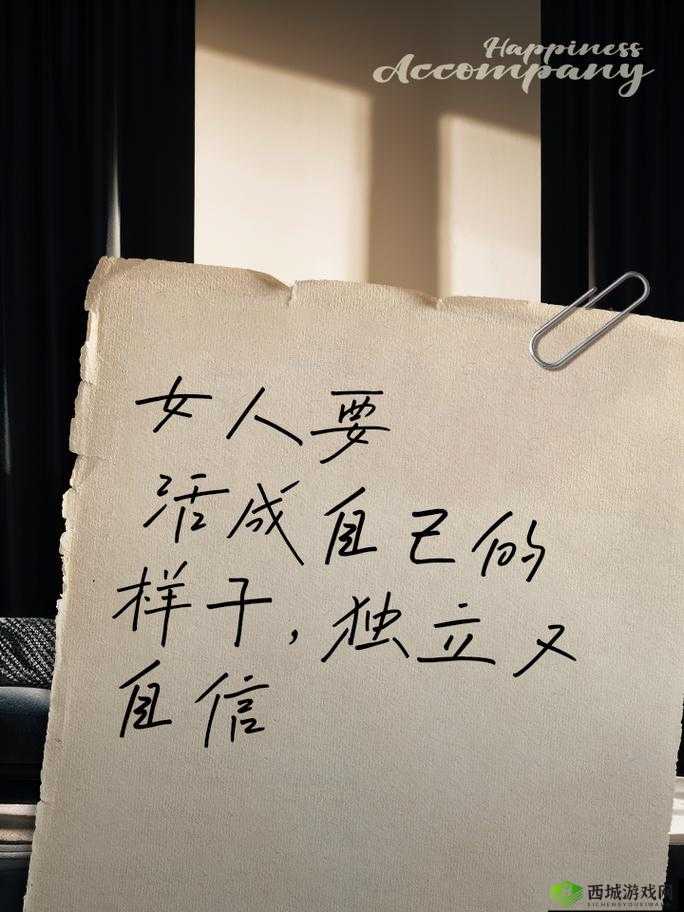 Happiness
Accompany
女人要
活成自己的
样子，独立又
自信
西城游戏网
XICHENGYOUXIWANG